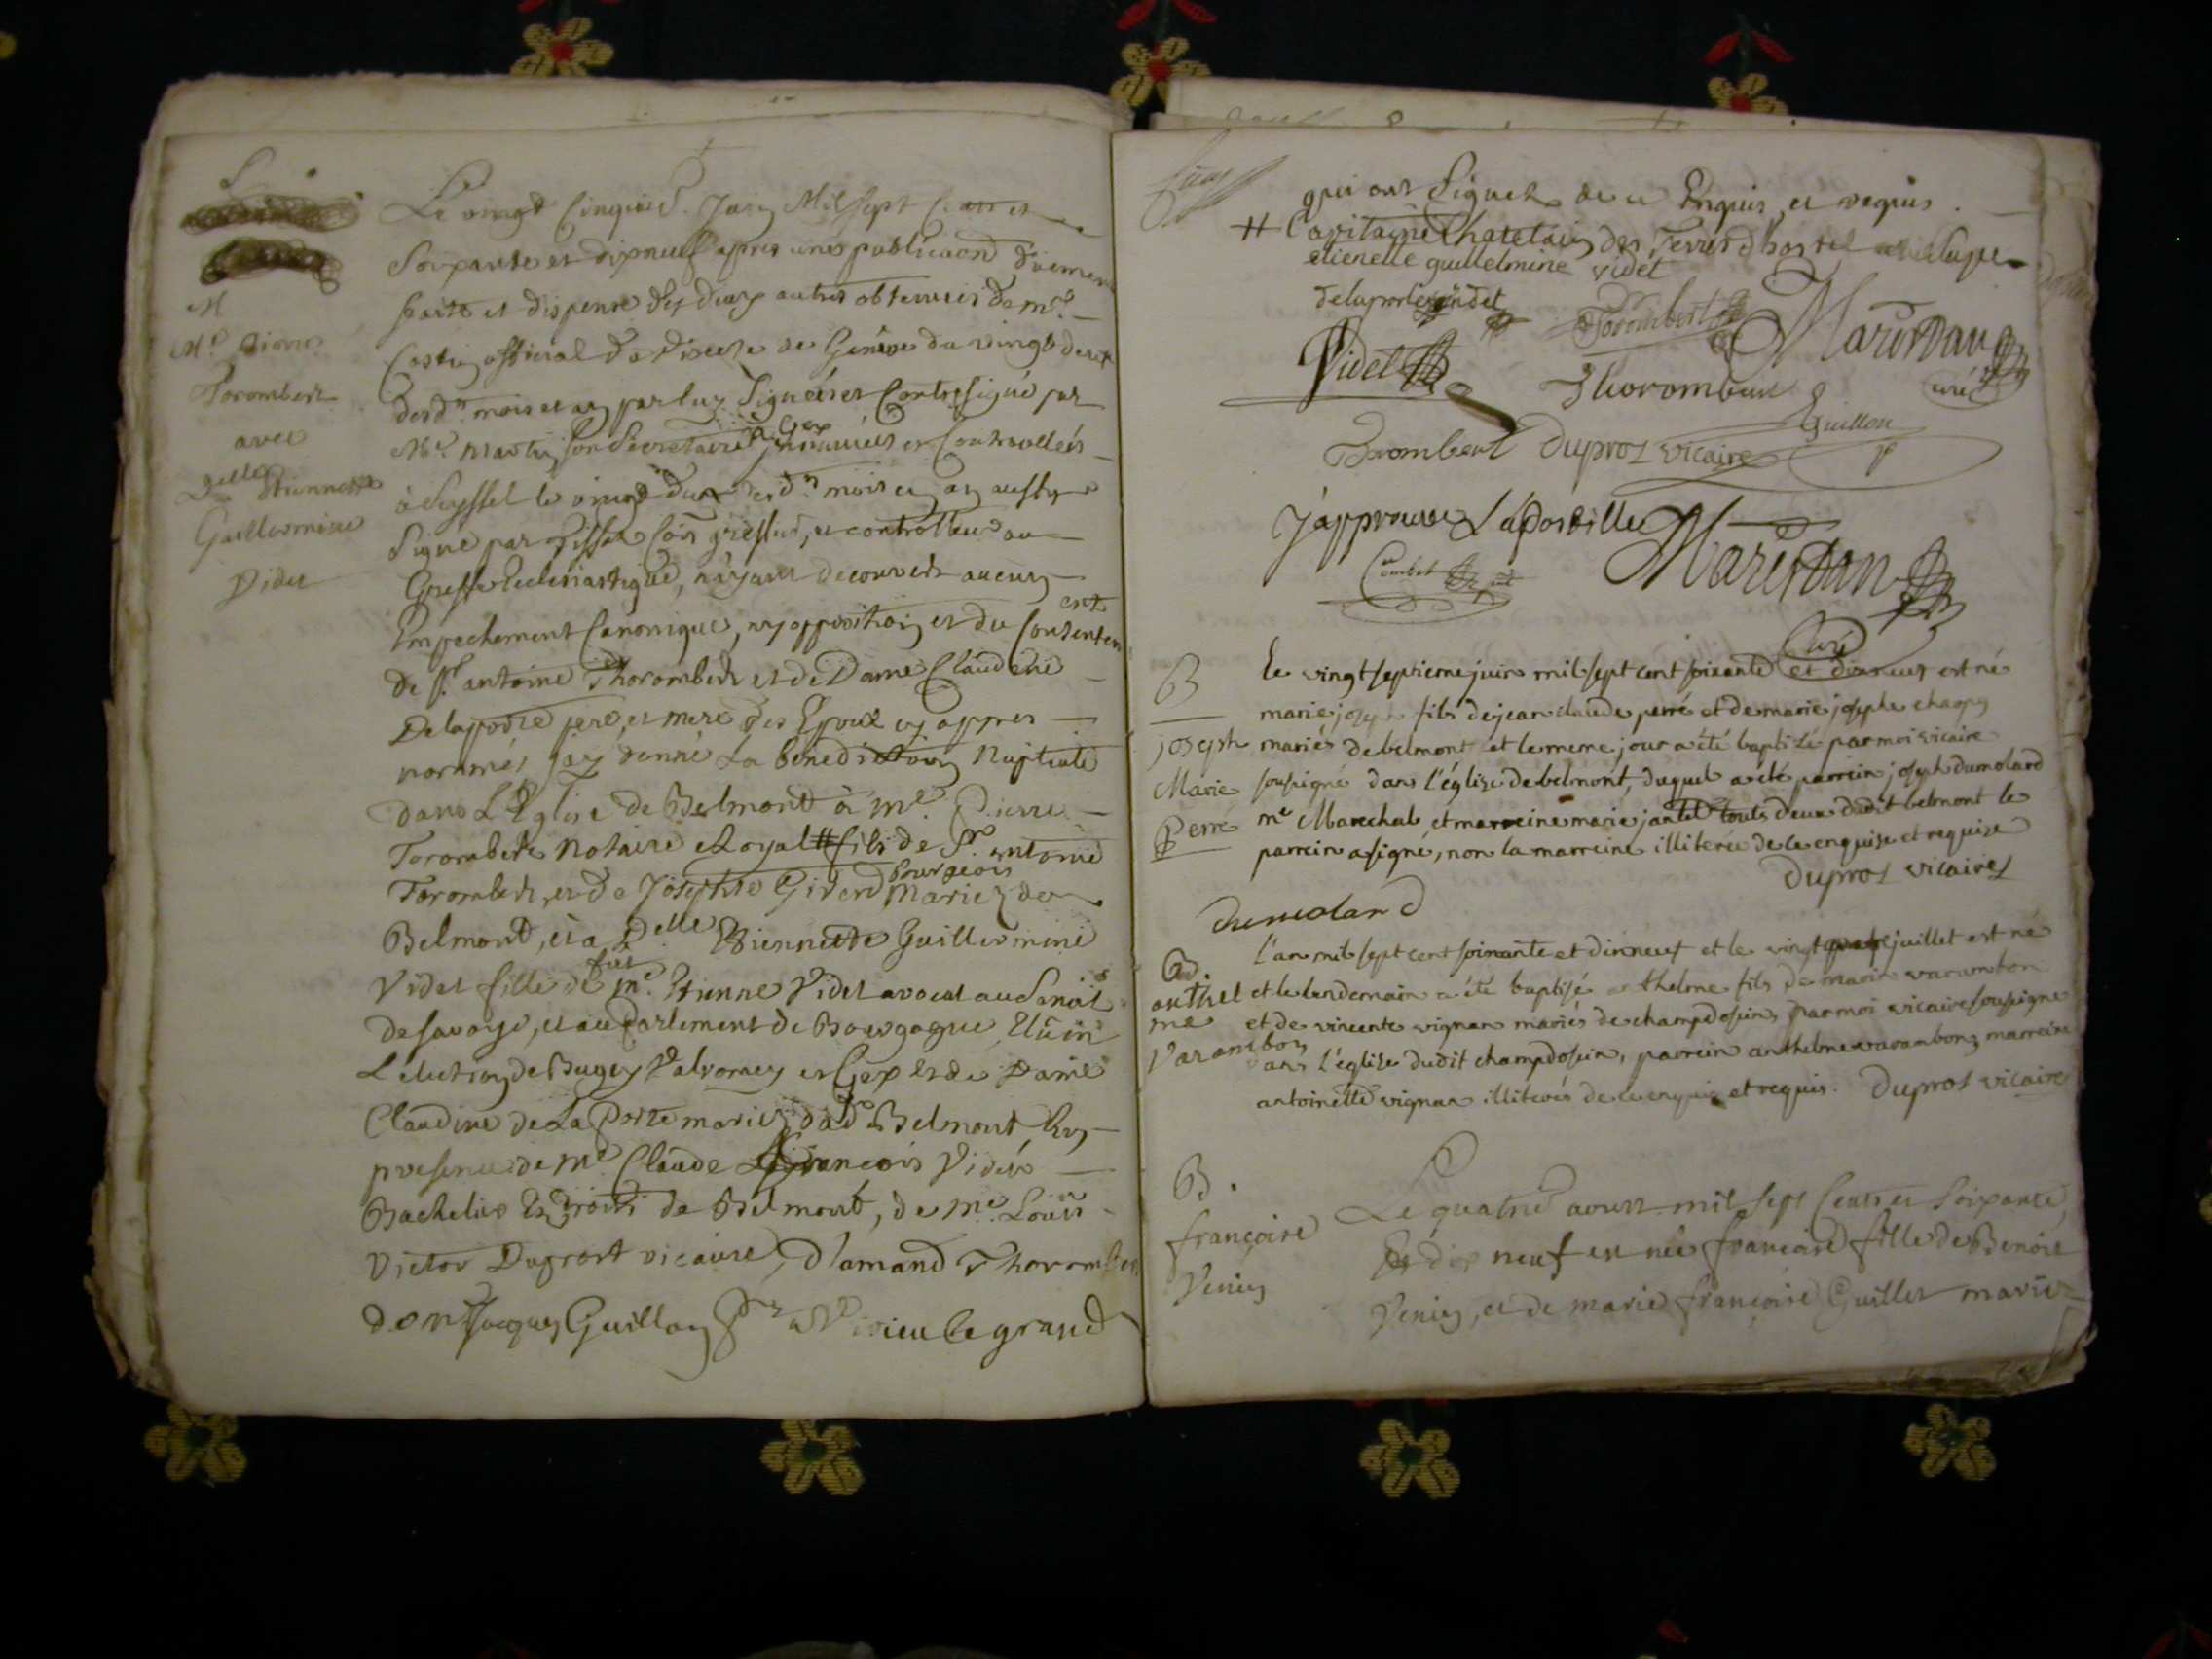 M
Me Pierre
Torombert
avec
Delle Etiennette
Guillermine
Videt
Le vingt cinquie. Juin Mil sept cent et
soixante et dix neuf apres une publicaon duement
faite et dispense des deux autres obtenues de mr.
Costin official du diocese de Genève du vingt deux
desdts mois et an par luy signées et contresigné par
Mr. Martin son secretaire, insinuées et controllées
à Seyssel le vingt deux desdts mois et an aussy
signé par commis greffier, et controlleur au
Greffe Ecclesiastique, n'ayant decouvert aucun
Empechement Canonique, ny opposition et du Consentement
de sr. antoine Thorombert et de Dame Claudine
Delaporte pere, et mere des Epoux cy appres
nommés, j'ay donné La benediction Nuptiale
dans L'Eglise de Belmont à me. Pierre
Torombert Notaire Royal # fils de Sr. antoine
Torombert, et de Josephte Girerd bourgeois Mariez de
Belmont, et à Delle Etiennette Guillermine
Videt fille de fut me. Etienne Videt avocat au Senat
de savoye, et au parlement de Bourgogne, Elû en
L'election de Bugey Valromey et Gex et de Dame
Claudine de La porte mariez dud. Belmont, En
presence de me. Claude François Videt
Bachelier Es droits de Belmont, de me. Louis
Victor Duprost vicaire, d'amand Thorombert
dont Jacques Guillon Virieu le grand
qui ont signez de ce Enquis, et requis.
# Capitaine Chatelain des Terres d'hostel
etienette guillelmine videt
delaporte videt
Torombert
Marestan
curé
Videt
Thorombert
Guillon
Torombert Duprost vicaire
J'approuve L'apostille
Marestan
Curé
B
joseph
Marie
Perre
le vingt septieme juin mil sept cent soixante et dixneuf est né
marie joseph fils de jean claude perré et de marie josephe chapuy
mariés de belmont et le meme jour a été baptisé par moi vicaire
soussigné dans l'église de belmont, duquel a été parrein joseph dumolard
me Marechal et marreine marie jantet touts deux dudit belmont le
parrein a signé, non la marreine illiterée de ce enquise et requise
Duprost vicaire
dumolard
B.
anthel
me
Varambon
L'an mil sept cent soixante et dixneuf et le vingt quatre juillet est né
et le lendemain a été baptisé anthelme fils de marin varambon
et de vincente vignan mariés de champdosin, par moi vicaire soussigné
dans l'église dudit champdosin, parrein anthelme varambon, marreine
antoinette vignan illiterés de ce enquis et requis. Duprost vicaire
B.
françoise
Venin
Le quatre aoust mil sept Cents et soixante
Et dix neuf est née françoise fille de Benoit
Venin, et de marie françoise Guillet marie